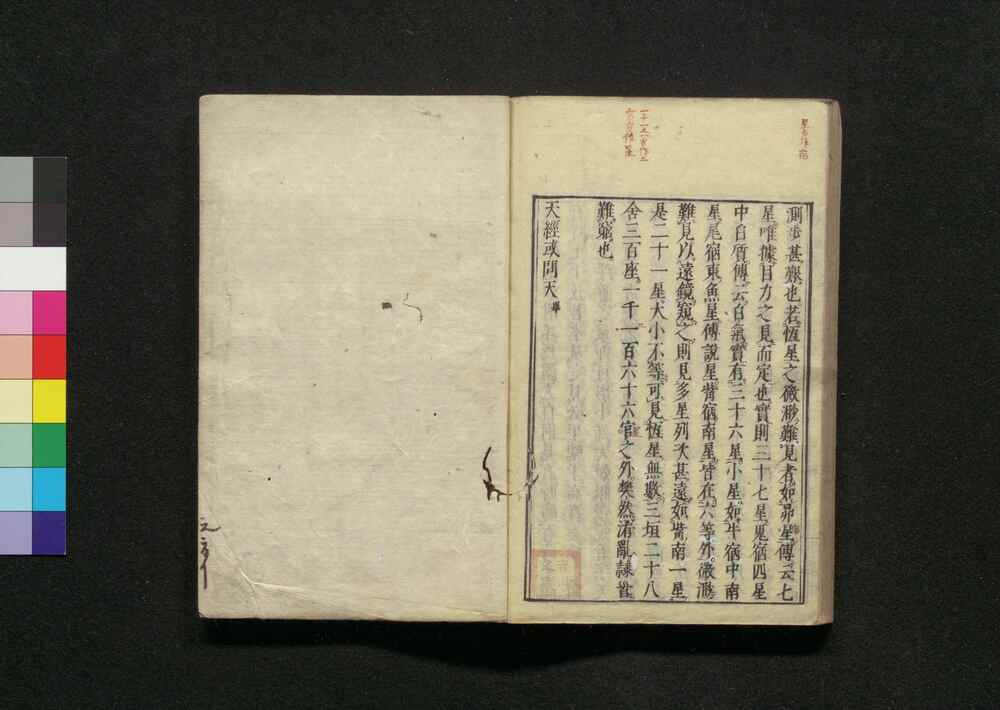 測步甚難也若恆星之微渺難見者如昴星傳云七
星唯據目力之見而定也實則三十七星鬼宿四星
中白質傳云白氣實有三十六星小星如牛宿中南
星尾宿東魚星傳說星觜宿南星皆在六等外微渺
難見以遠鏡窺之則見多星列次甚遠如觜南一星
是二十一星大小不等可見恆星無數三垣二十八
舍三百座一千一百六十六官之外樊然淆亂隷首
難窮也
天經或問天畢